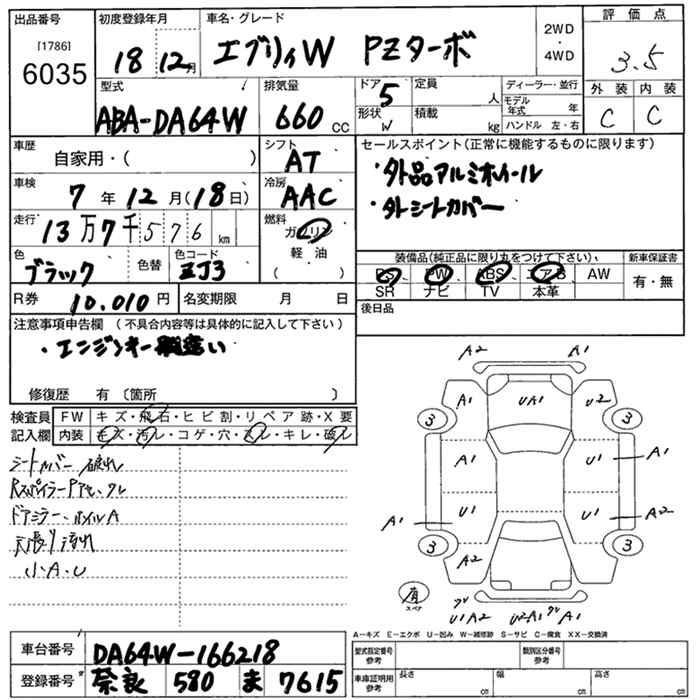 出品番号 初度登録年月 車名・グレード 2WD・4WD 評価点
[1786]
6035 18 12月 エブリィW PZターボ 3.5
型式 排気量 ドア 定員 ディーラー・並行 外装 内装
ABA-DA64W 660 CC 5 人 モデル年式 年 C C
形状 W 積載 kg ハンドル 左・右
車歴 自家用・( ) シフト AT セールスポイント(正常に機能するものに限ります)
車検 7年 12月(18日) 冷房 AAC ・外品アルミホイール
走行 13万7千576km 燃料 ガソリン ・外シートカバー
軽油
( )
色 ブラック 色替 色コード ZJ3 装備品(純正品に限り丸をつけて下さい) 新車保証書
PS PW ABS エアB AW 有・無
SR ナビ TV 本革
R券 10.010円 名変期限 月 日 後日品
注意事項申告欄 (不具合内容等は具体的に記入して下さい)
・エンジンキー 違い
修復歴 有〔箇所 〕
検査員 FW キズ・飛石・ヒビ割・リペア跡・X要
記入欄 内装 キズ・汚レ・コゲ・穴・スレ・キレ・破レ
シートカバー破れ
RスポイラーPアセ、クレ
ドアミラー、ホイルA
天張り汚れ
小A.U
A2 A1
A1 UA1 U2
3 3
A1 U1 A1
A1 U1 U1 A2
3 A2 3
有 スペア
クレ クレ
U1A2 U2A1 A1
A-キズ E-エクボ U-凹み W-補修跡 S-サビ C-腐食 XX-交換済
車台番号 DA64W-166218 型式指定番号 参考 類別区分番号 参考
登録番号 奈良 580 ま 7615 車庫証明用 参考 長さ cm 幅 cm 高さ cm